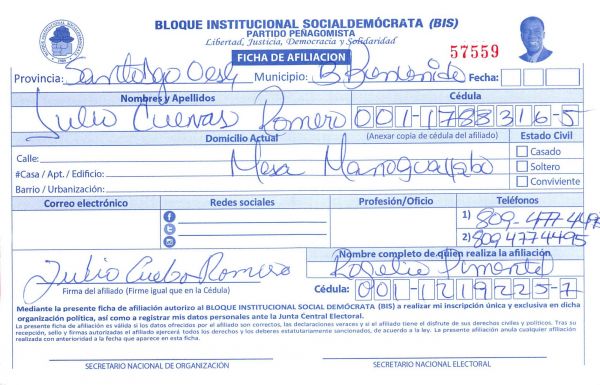 BLOQUE INSTITUCIONAL SOCIALDEMÓCRATA (BIS)
PARTIDO PEÑAGOMISTA
Libertad, Justicia, Democracia y Solidaridad
FICHA DE AFILIACION
57559
Provincia: Santo Domingo Oeste Municipio: Fecha:
Nombres y Apellidos Cédula
Julio Cuevas Romero 001-1788316-5
Domicilio Actual (Anexar copia de cédula del afiliado) Estado Civil
Calle: Casado
#Casa / Apt. / Edificio: Soltero
Barrio / Urbanización: Conviviente
Correo electrónico Redes sociales Profesión/Oficio Teléfonos
1) 809-477-4495
2) 809 477 4495
Nombre completo de quien realiza la afiliación
Julio Romero Rogelio Pimentel
Firma del afiliado (Firme igual que en la Cédula) Cédula: 001-1219225-7
Mediante la presente ficha de afiliación autorizo al BLOQUE INSTITUCIONAL SOCIAL DEMÓCRATA (BIS) a realizar mi inscripción única y exclusiva en dicha
organización política, así como a registrar mis datos personales ante la Junta Central Electoral.
La presente ficha de afiliación es válida si los datos ofrecidos por el afiliado son correctos, las declaraciones veraces y si el afiliado tiene el disfrute de sus derechos civiles y políticos. Tras su
recepción, sello y firmas autorizadas el afiliado ejercerá todos los derechos y los deberes estatutariamente sancionados, de acuerdo a la ley. La presente afiliación anula cualquier afiliación
realizada con anterioridad a la fecha que aparece en esta ficha.
SECRETARIO NACIONAL DE ORGANIZACIÓN SECRETARIO NACIONAL ELECTORAL